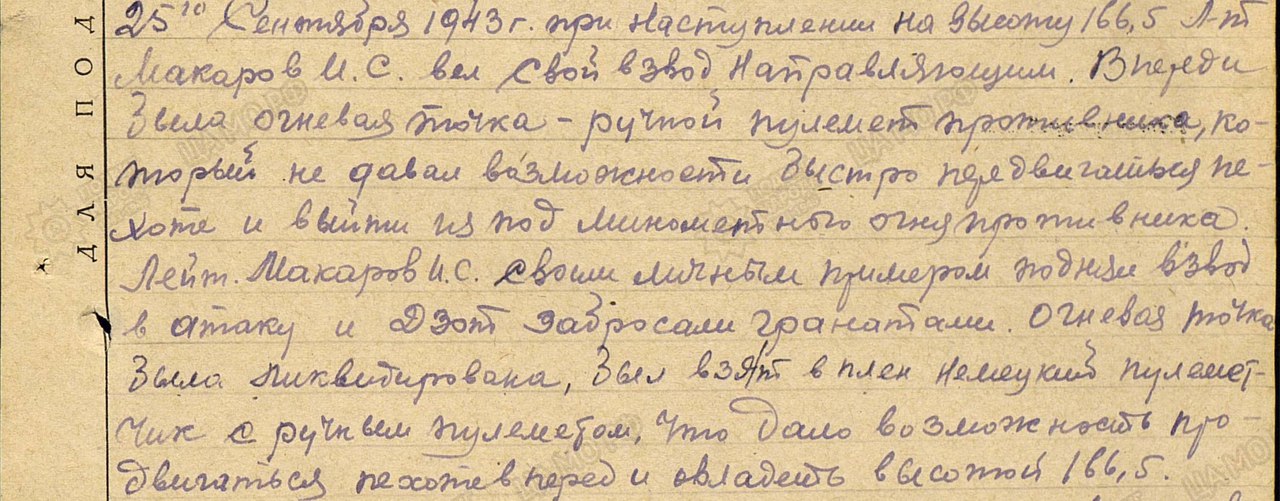 25го Сентября 1943г. при наступлении на высоту 166,5 Л-т
Макаров И.С. вел свой взвод направляющим. Впереди
была огневая точка - ручной пулемет противника, ко-
торый не давал возможности быстро передвигаться пе-
хоте и выйти из под минометного огня противника.
Лейт. Макаров И.С. своим личным примером поднял взвод
в атаку и Дзот забросали гранатами. Огневая точка
была ликвидирована, был взят в плен немецкий пулемет-
чик с ручным пулеметом, что дало возможность про-
двигаться пехоте вперед и овладеть высотой 166,5.
ДЛЯ ПОД
ЦАМО РФ